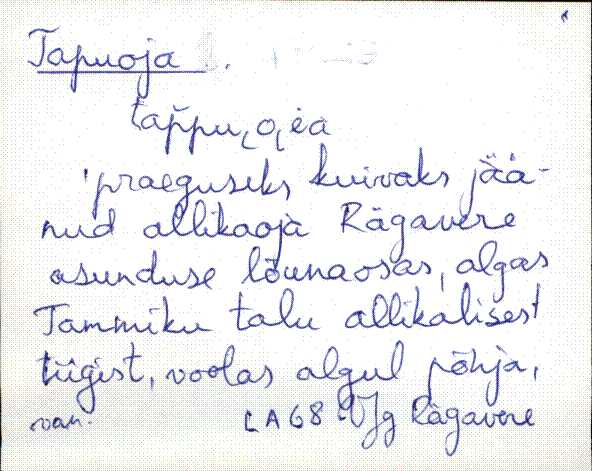 Tapuoja
tap̆pu̮o̮ėa
'praeguseks kuivaks jää-
nud allikaoja Rägavere
asunduse lõunaosas, algas
Tammiku talu allikalisest
tiigist, voolas algul põhja,
van. LA68 VJg Rägavere